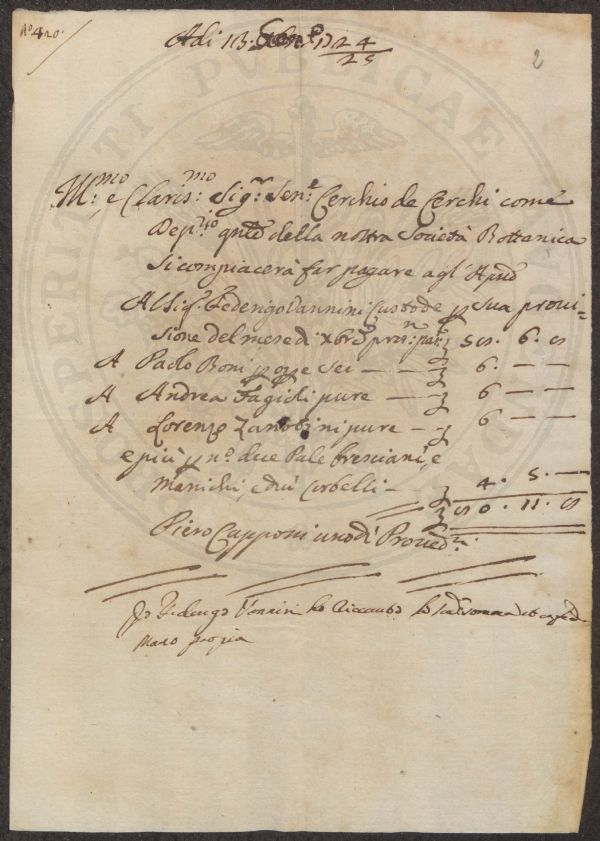 N.o 420.
Adi 13. Genn.o 1724/25
2
Ill.mo e Claris.mo Sig.r Sen.e Cerchio de Cerchi come
Dep.to della nostra Società Bottanica
si compiacerà far pagare agl'
Al Sig.r Federigo Vannini Custode p sua provi-
sione del mese di xbre 58. 6. 8
A Paolo Boni p op.e sei — 6. — —
A Andrea Fagioli pure — 6 — —
A Lorenzo Zanobini pure — 6 — —
e più p n.o due Pale bresciani, e
Manichi, e di Corbelli — 4. 5. —
80. 11. 8
Piero Capponi uno di Proved.ri
Io Federigo Vannini ho ricevuto la
mano propia